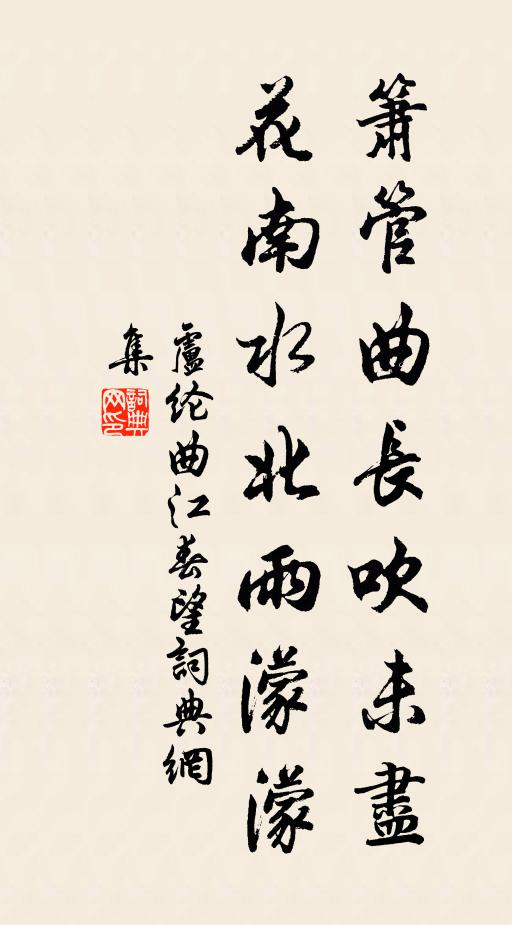 簫管曲長吹未盡
花南水北雨濛濛
盧纶曲江春望詞典網
集
詞典
网印